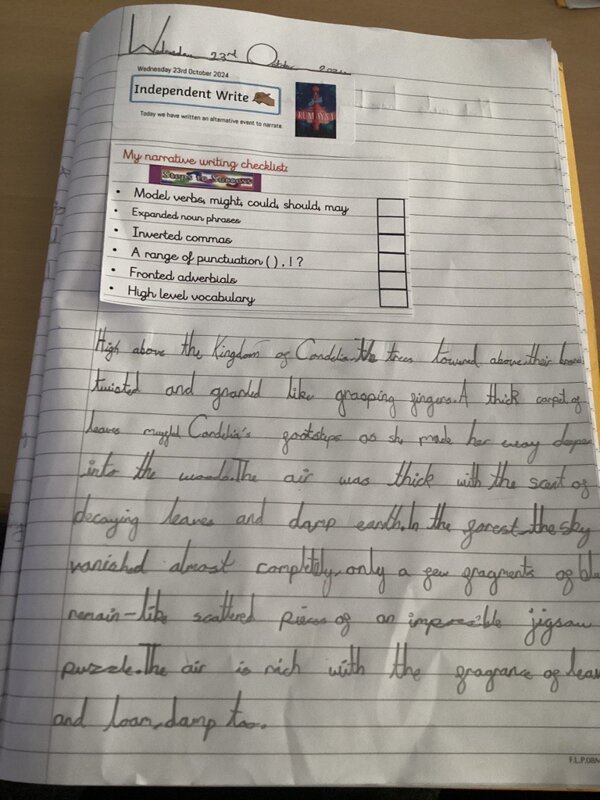 Wednesday 23rd October 2024
Wednesday 23rd October 2024
Independent Write
RUMAYSA
Today we have written an alternative event to narrate.
My narrative writing checklist:
Steps to Success
Model verbs, might, could, should, may
Expanded noun phrases
Inverted commas
A range of punctuation ( ) , ! ?
Fronted adverbials
High level vocabulary
High above the Kingdom of Cordelia. the trees towered above. their
twisted and gnarled like grasping fingers. A thick carpet of
leaves Cordelia's footsteps as she made her way deeper
into the woods. The air was thick with the scent of
decaying leaves and damp earth. In the forest the sky
vanished almost completely, only a few fragments of
remain - like scattered pieces of an impossible jigsaw
puzzle. The air is rich with the fragrance of
and loam, damp too.
F.L.P.08M